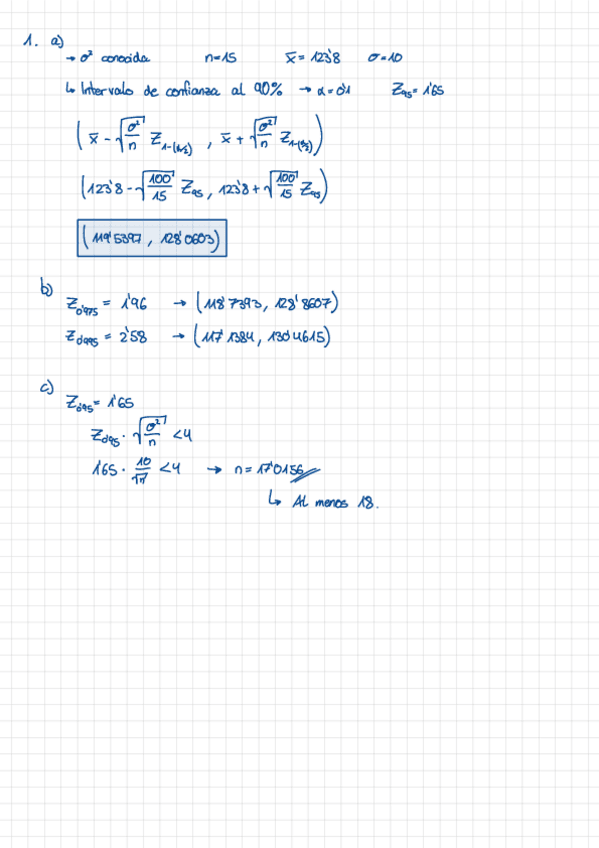 1. a)
→ σ² conocida n=15 x̄ = 123'8 σ=10
↳ Intervalo de confianza al 90% → α=0'1 Z₉₅ = 1'65
(x̄ - √(σ²/n) Z₁₋(α/₂) , x̄ + √(σ²/n) Z₁₋(α/₂))
(123'8 - √(100/15) Z₉₅ , 123'8 + √(100/15) Z₉₅)
(119'5397 , 128'0603)
b)
Z₀'₉₇₅ = 1'96 → (118'7393, 128'8607)
Z₀'₉₉₅ = 2'58 → (117'1384, 130'4615)
c)
Z₀'₉₅ = 1'65
Z₀'₉₅ · √(σ²/n) < 4
1'65 · 10/√n < 4 → n = 17'0156
↳ Al menos 18.